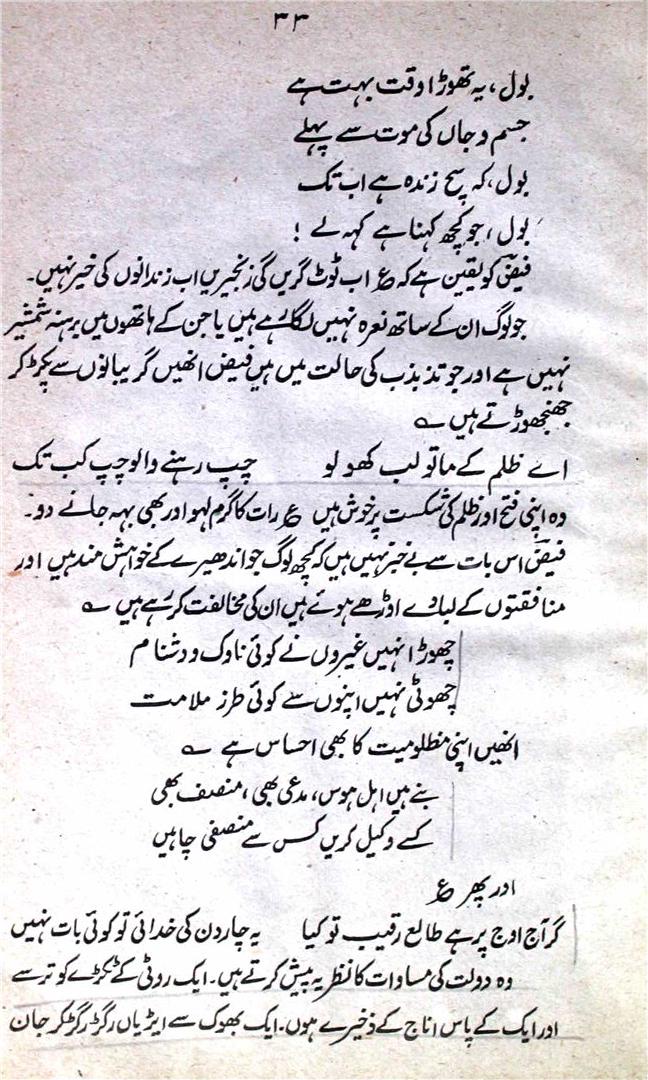 ۳۳
بول، یہ تھوڑا وقت بہت ہے
جسم و جاں کی موت سے پہلے
بول، کہ سچ زندہ ہے اب تک
بول، جو کچھ کہنا ہے کہہ لے !
فیضؔ کو یقین ہے کہ ع اب ٹوٹ گریں گی زنجیریں اب زندانوں کی خیر نہیں۔
جو لوگ ان کے ساتھ نعرہ نہیں لگا رہے ہیں یا جن کے ہاتھوں میں برہنہ شمشیر
نہیں ہے اور جو تذبذب کی حالت میں ہیں فیض انھیں گریبانوں سے پکڑ کر
جھنجھوڑتے ہیں ؎
اے ظلم کے ماتو لب کھولو چپ رہنے والو چپ کب تک
وہ اپنی فتح اور ظلم کی شکست پر خوش ہیں ع رات کا گرم لہو اور بھی بہہ جانے دو۔
فیضؔ اس بات سے بے خبر نہیں ہیں کہ کچھ لوگ جو اندھیرے کے خواہش مند ہیں اور
منافقتوں کے لبادے اوڑھے ہوئے ہیں ان کی مخالفت کر رہے ہیں ؎
چھوڑا نہیں غیروں نے کوئی ناوک و دشنام
چھوٹی نہیں اپنوں سے کوئی طرز ملامت
انھیں اپنی مظلومیت کا بھی احساس ہے ؎
بنے ہیں اہل ہوس، مدعی بھی، منصف بھی
کسے وکیل کریں کس سے منصفی چاہیں
اور پھر ع
گر آج اوج پر ہے طالع رقیب تو کیا یہ چار دن کی خدائی تو کوئی بات نہیں
وہ دولت کی مساوات کا نظریہ پیش کرتے ہیں۔ ایک روٹی کے ٹکڑے کو ترسے
اور ایک کے پاس اناج کے ذخیرے ہوں۔ ایک بھوک سے ایڑیاں رگڑ رگڑ کر جان